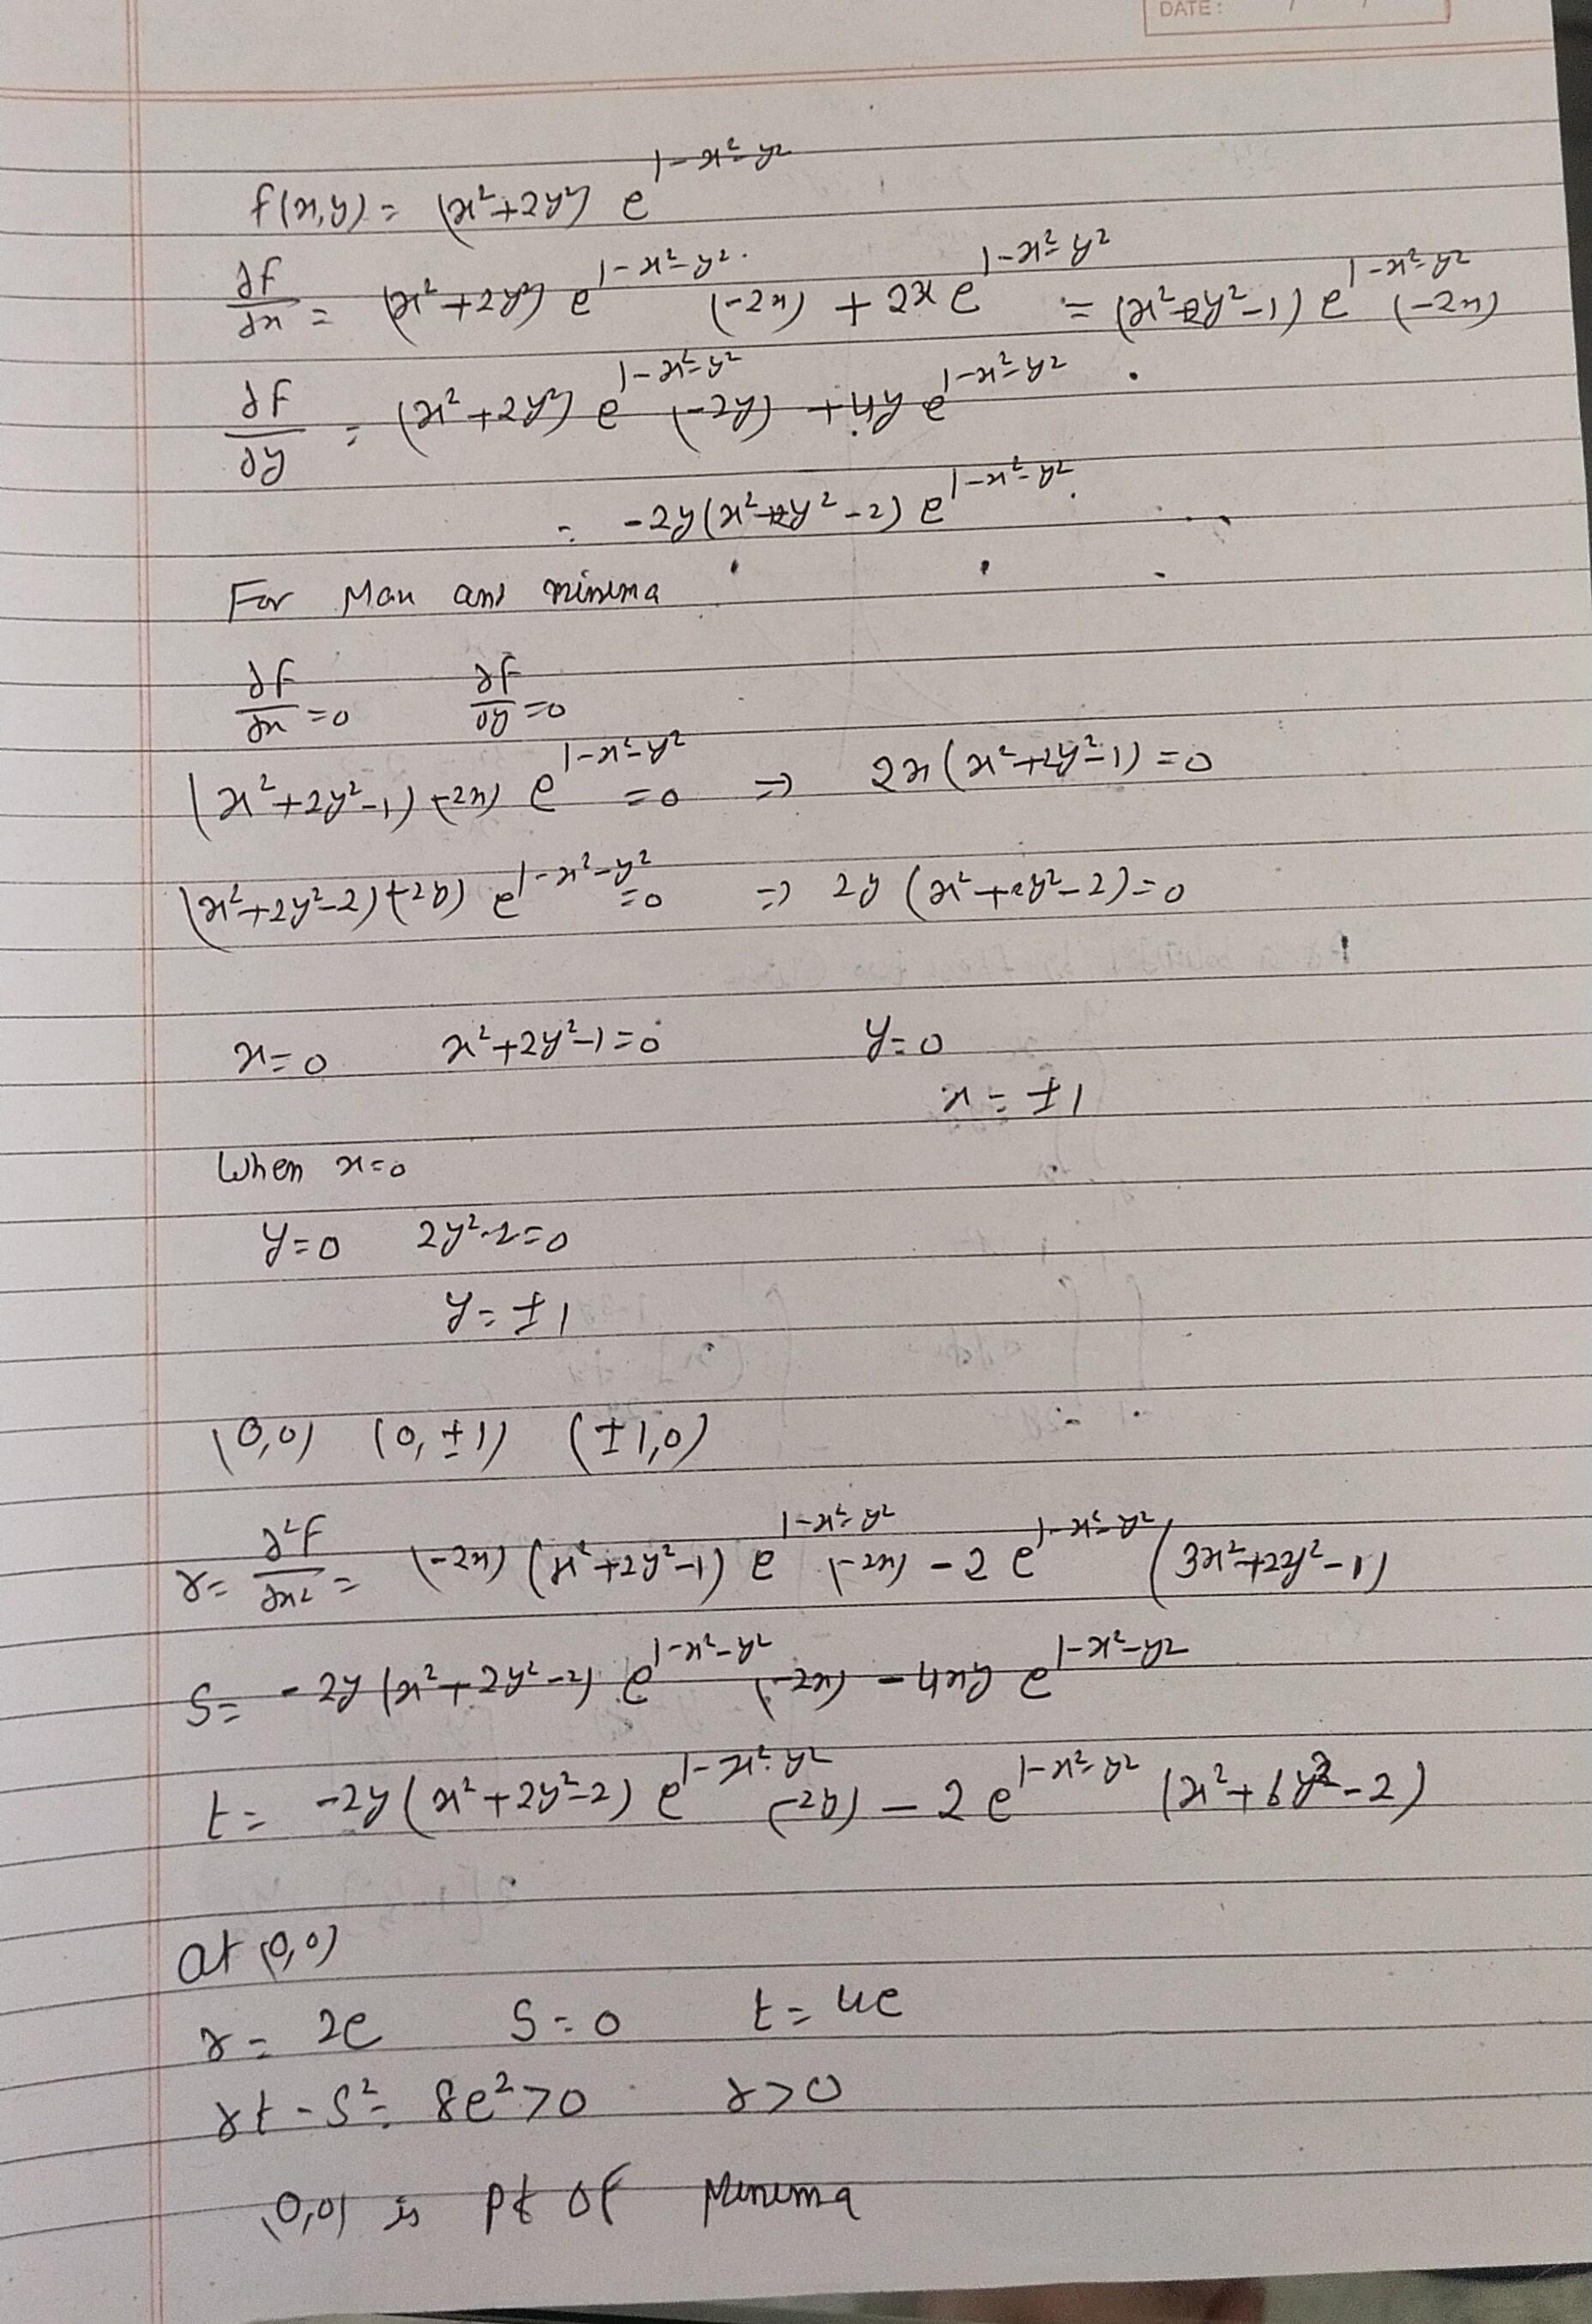 DATE: / /
f(x,y) = (x²+2y²) e^{1-x²-y²}
∂f/∂x = (x²+2y²) e^{1-x²-y²} (-2x) + 2x e^{1-x²-y²} = (x²+2y²-1) e^{1-x²-y²} (-2x)
∂f/∂y = (x²+2y²) e^{1-x²-y²} (-2y) + 4y e^{1-x²-y²}
= -2y(x²+2y²-2) e^{1-x²-y²}
For Max and minima
∂f/∂x = 0 ∂f/∂y = 0
(x²+2y²-1) (-2x) e^{1-x²-y²} = 0 ⇒ 2x(x²+2y²-1) = 0
(x²+2y²-2) (-2y) e^{1-x²-y²} = 0 ⇒ 2y (x²+2y²-2) = 0
x=0 x²+2y²-1=0 y=0
x = ±1
When x=0
y=0 2y²-2=0
y=±1
(0,0) (0,±1) (±1,0)
r = ∂²f/∂x² = (-2x) (x²+2y²-1) e^{1-x²-y²} (-2x) - 2 e^{1-x²-y²} (3x²+2y²-1)
S = -2y (x²+2y²-2) e^{1-x²-y²} (-2x) - 4xy e^{1-x²-y²}
t = -2y (x²+2y²-2) e^{1-x²-y²} (-2y) - 2 e^{1-x²-y²} (x²+6y²-2)
at (0,0)
r = 2e S = 0 t = 4e
rt - S² = 8e² > 0 r > 0
(0,0) is pt of Minima